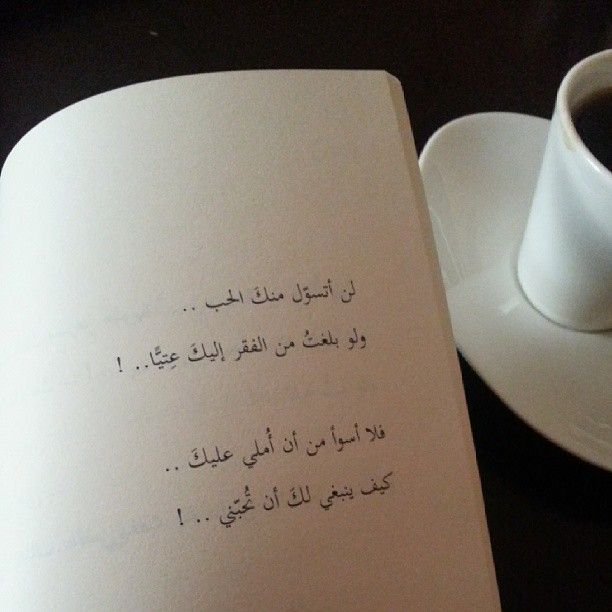 لن أتسوّل منكَ الحب ..
ولو بلغتُ من الفقر إليكَ عِتيًّا.. !
فلا أسوأ من أن أُملي عليكَ ..
كيف ينبغي لكَ أن تُحبّني .. !